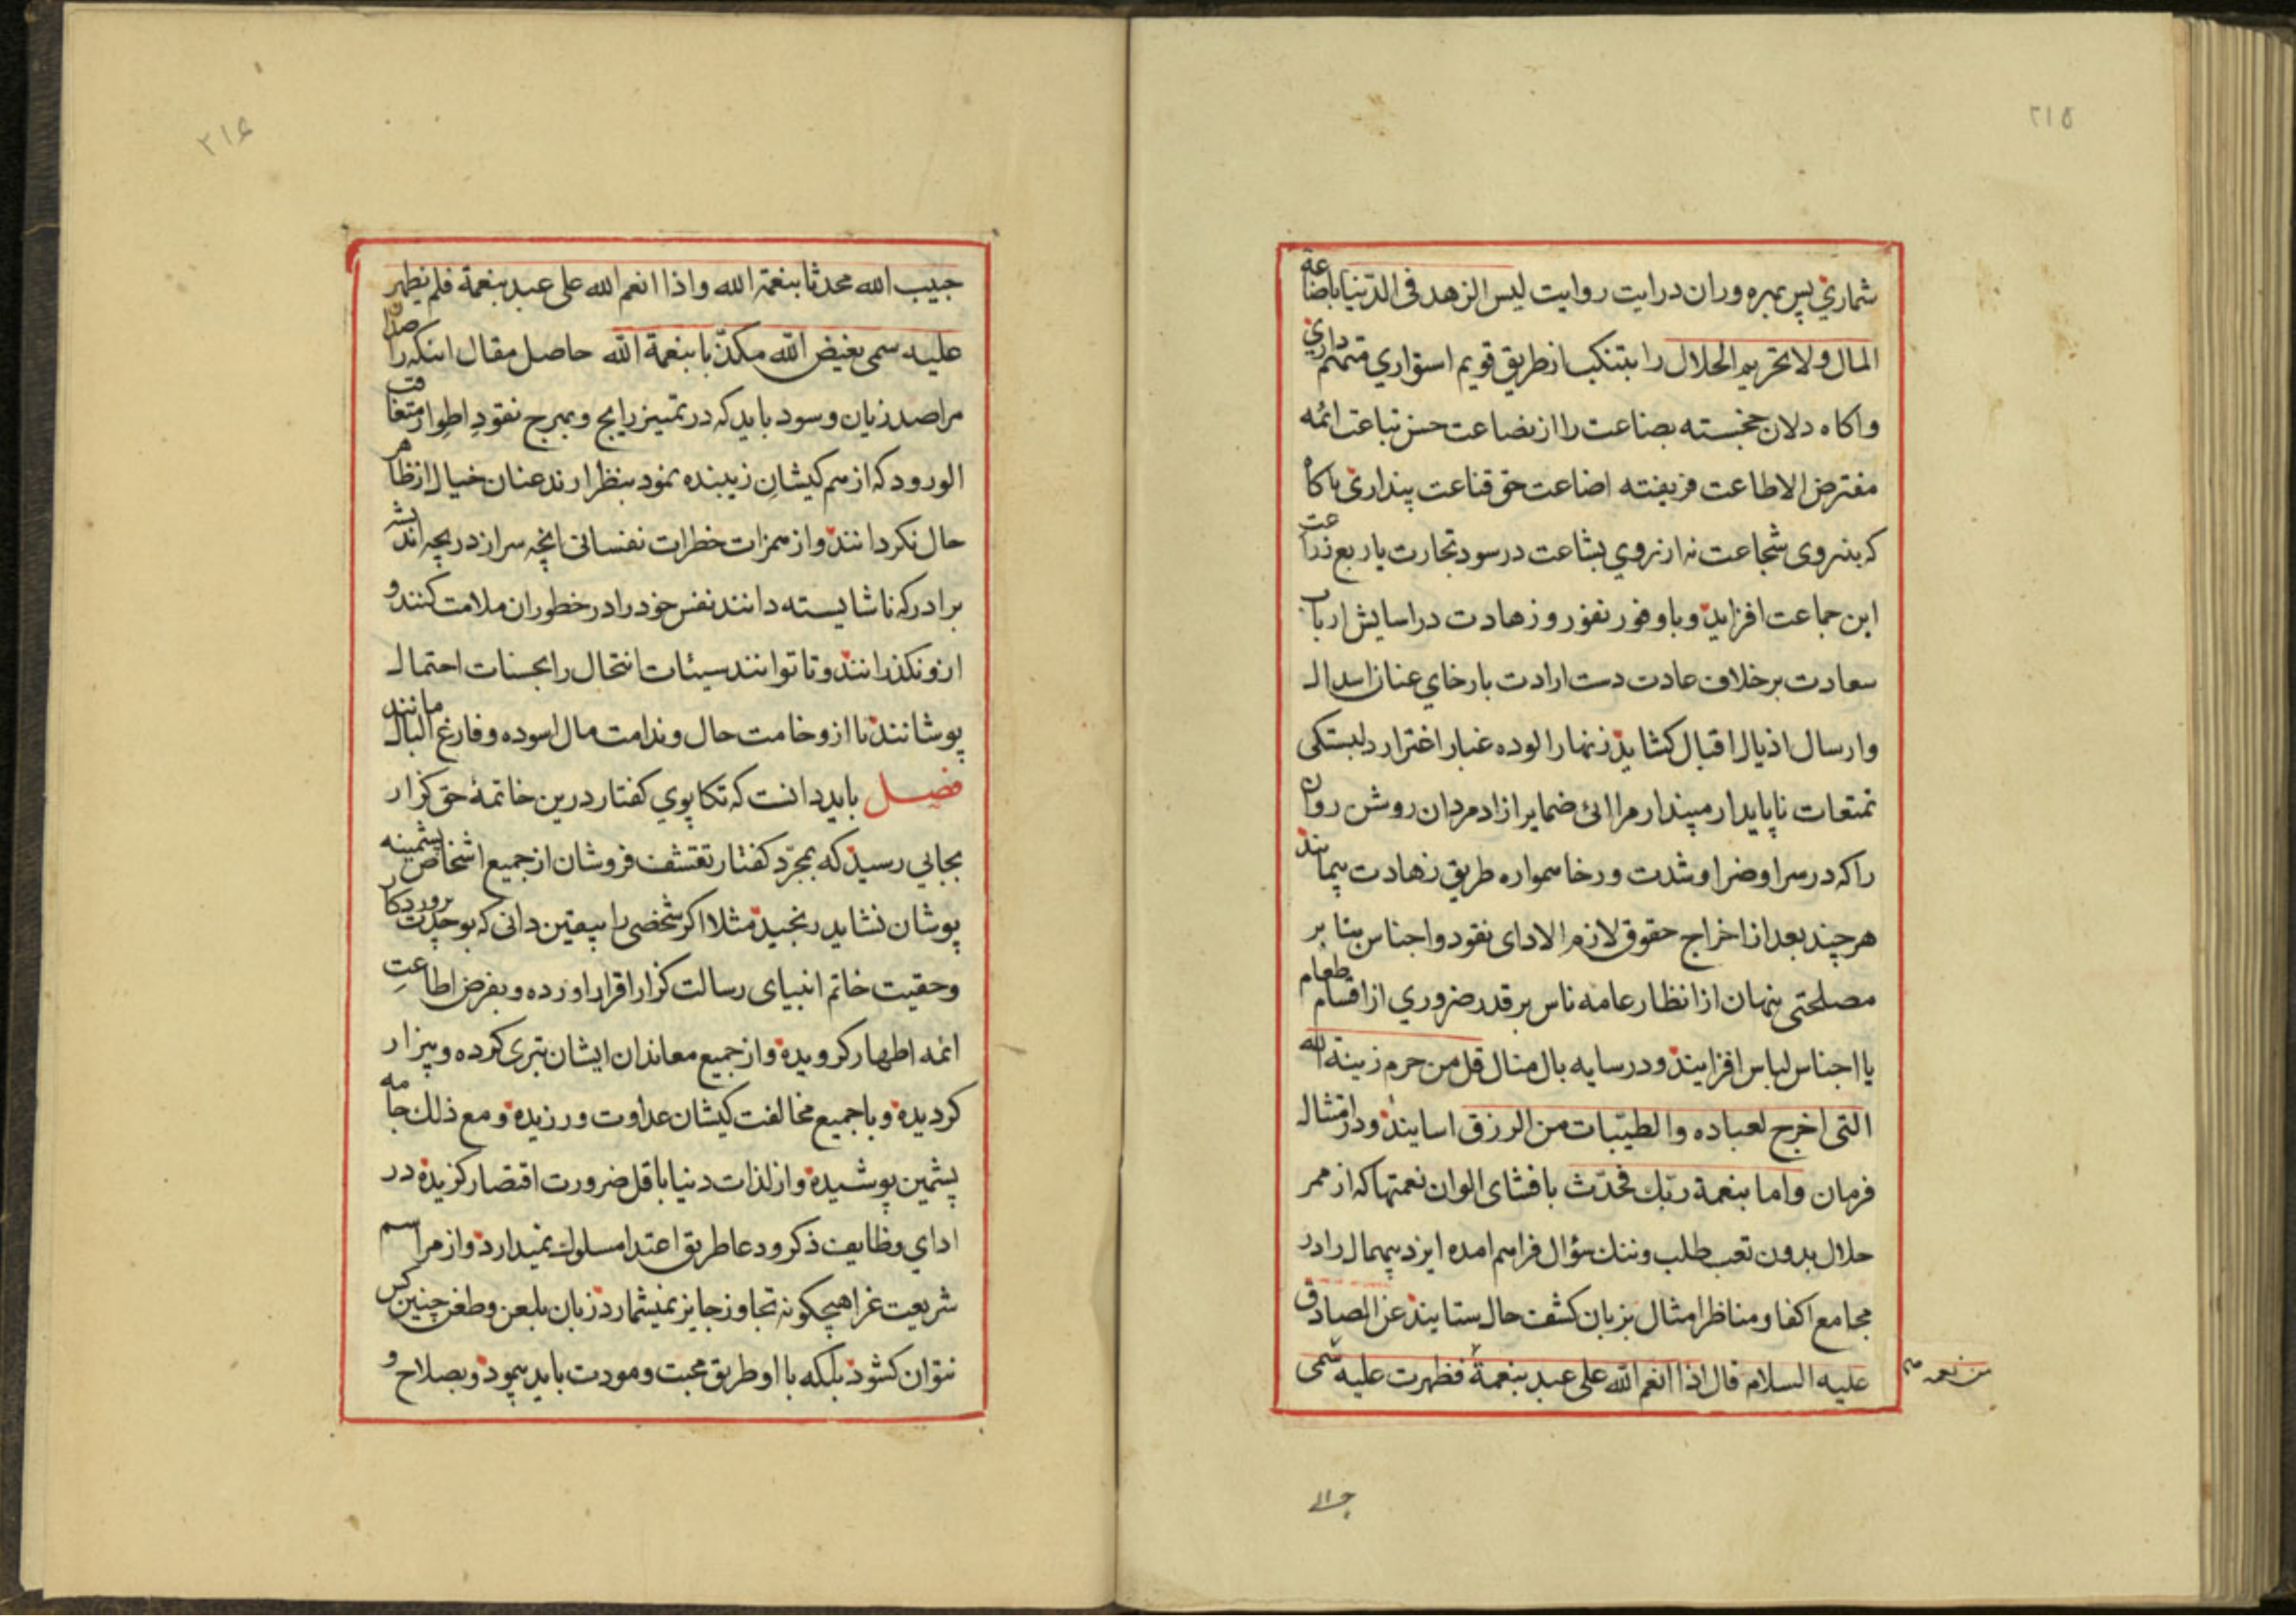 ۲۱۵
شماری پس بهره وران درایت روایت لیس الزهد فی الدنیا باضاعة
المال ولا تحریم الحلال را بتنکب از طریق قویم استواری متهم داری
واکاه دلان خجسته بضاعت را از بضاعت حسن تباعت ائمه
مفترض الاطاعت فریفته اضاعت حق قناعت پنداری ناکاه
که بنیروی شجاعت نه از نروی بشاعت در سود تجارت یا ربع زراعت
این جماعت افزاید و با وفور نفور و زهادت در اسایش ارباب
سعادت بر خلاف عادت دست ارادت بارخای عنان اسدال
وارسال اذیال اقبال کشاید زنهار الوده غبار اغترار دلبستکی
تمتعات ناپایدار مپندار مرائی ضمایر ازاد مردان روشن روان
را که در سرا و ضرا و شدت و رخا همواره طریق زهادت پیمایند
هر چند بعد از اخراج حقوق لازم الادای نقود و اجناس بنا بر
مصلحتی پنهان از انظار عامه ناس بر قدر ضروری از اقسام طعام
یا اجناس لباس افزایند و در سایه بال منال قل من حرم زینة الله
التی اخرج لعباده والطیبات من الرزق اسایند و در امتثال
فرمان واما بنعمة ربک فحدث بافشای الوان نعمتها که از ممر
حلال بدون تعب طلب و ننک سؤال فراهم امده ایزد بیهمال را در
مجامع اکفا و مناظر امثال بزبان کشف حال ستایند عن الصادق
علیه السلام قال اذا انعم الله علی عبد بنعمة فظهرت علیه سمی
من نعمه
۲۱۶
حبیب الله محدثا بنعمة الله واذا انعم الله علی عبد بنعمة فلم یظهر
علیه سمی بغیض الله مکذبا بنعمة الله حاصل مقال اینکه راصدان
مراصد زیان و سود باید که در تمییز رایج و بهرج نقود اطوار متعاقب
الورود که از هم کیشان زیبنده نمود بنظر ارند عنان خیال از ظاهر
حال نکردانند و از همزات خطرات نفسانی انچه سر از دریچه اندیشه
برادر که ناشایسته دانند نفس خود را در خطور ان ملامت کنند و
ازو نکذرانند و تا توانند سیئات انتحال را بحسنات احتمال
پوشانند تا از وخامت حال و ندامت مال اسوده و فارغ البال مانند
فصل باید دانست که تکاپوی کفتار درین خاتمهٔ حق کزار
بجایی رسید که بمجرد کفتار تقشف فروشان از جمیع اشخاص پشمینه
پوشان نشاید رنجید مثلا اکر شخصی را بیقین دانی که بوحدت پروردکار
وحقیت خاتم انبیای رسالت کزار اقرار اورده و بفرض اطاعت
ائمه اطهار کرویده و از جمیع معاندان ایشان تبری کرده و بیزار
کردیده و با جمیع مخالفت کیشان عداوت ورزیده و مع ذلک جامه
پشمین پوشیده و از لذات دنیا باقل ضرورت اقتصار کزیده در
ادای وظایف ذکر و دعا طریق اعتدا مسلوک نمیدارد و از مراسم
شریعت غرا هیچکونه تجاوز جایز نمیشمارد زبان بلعن و طعن چنین کس
نتوان کشود بلکه با او طریق محبت و مودت باید پیمود و بصلاح و